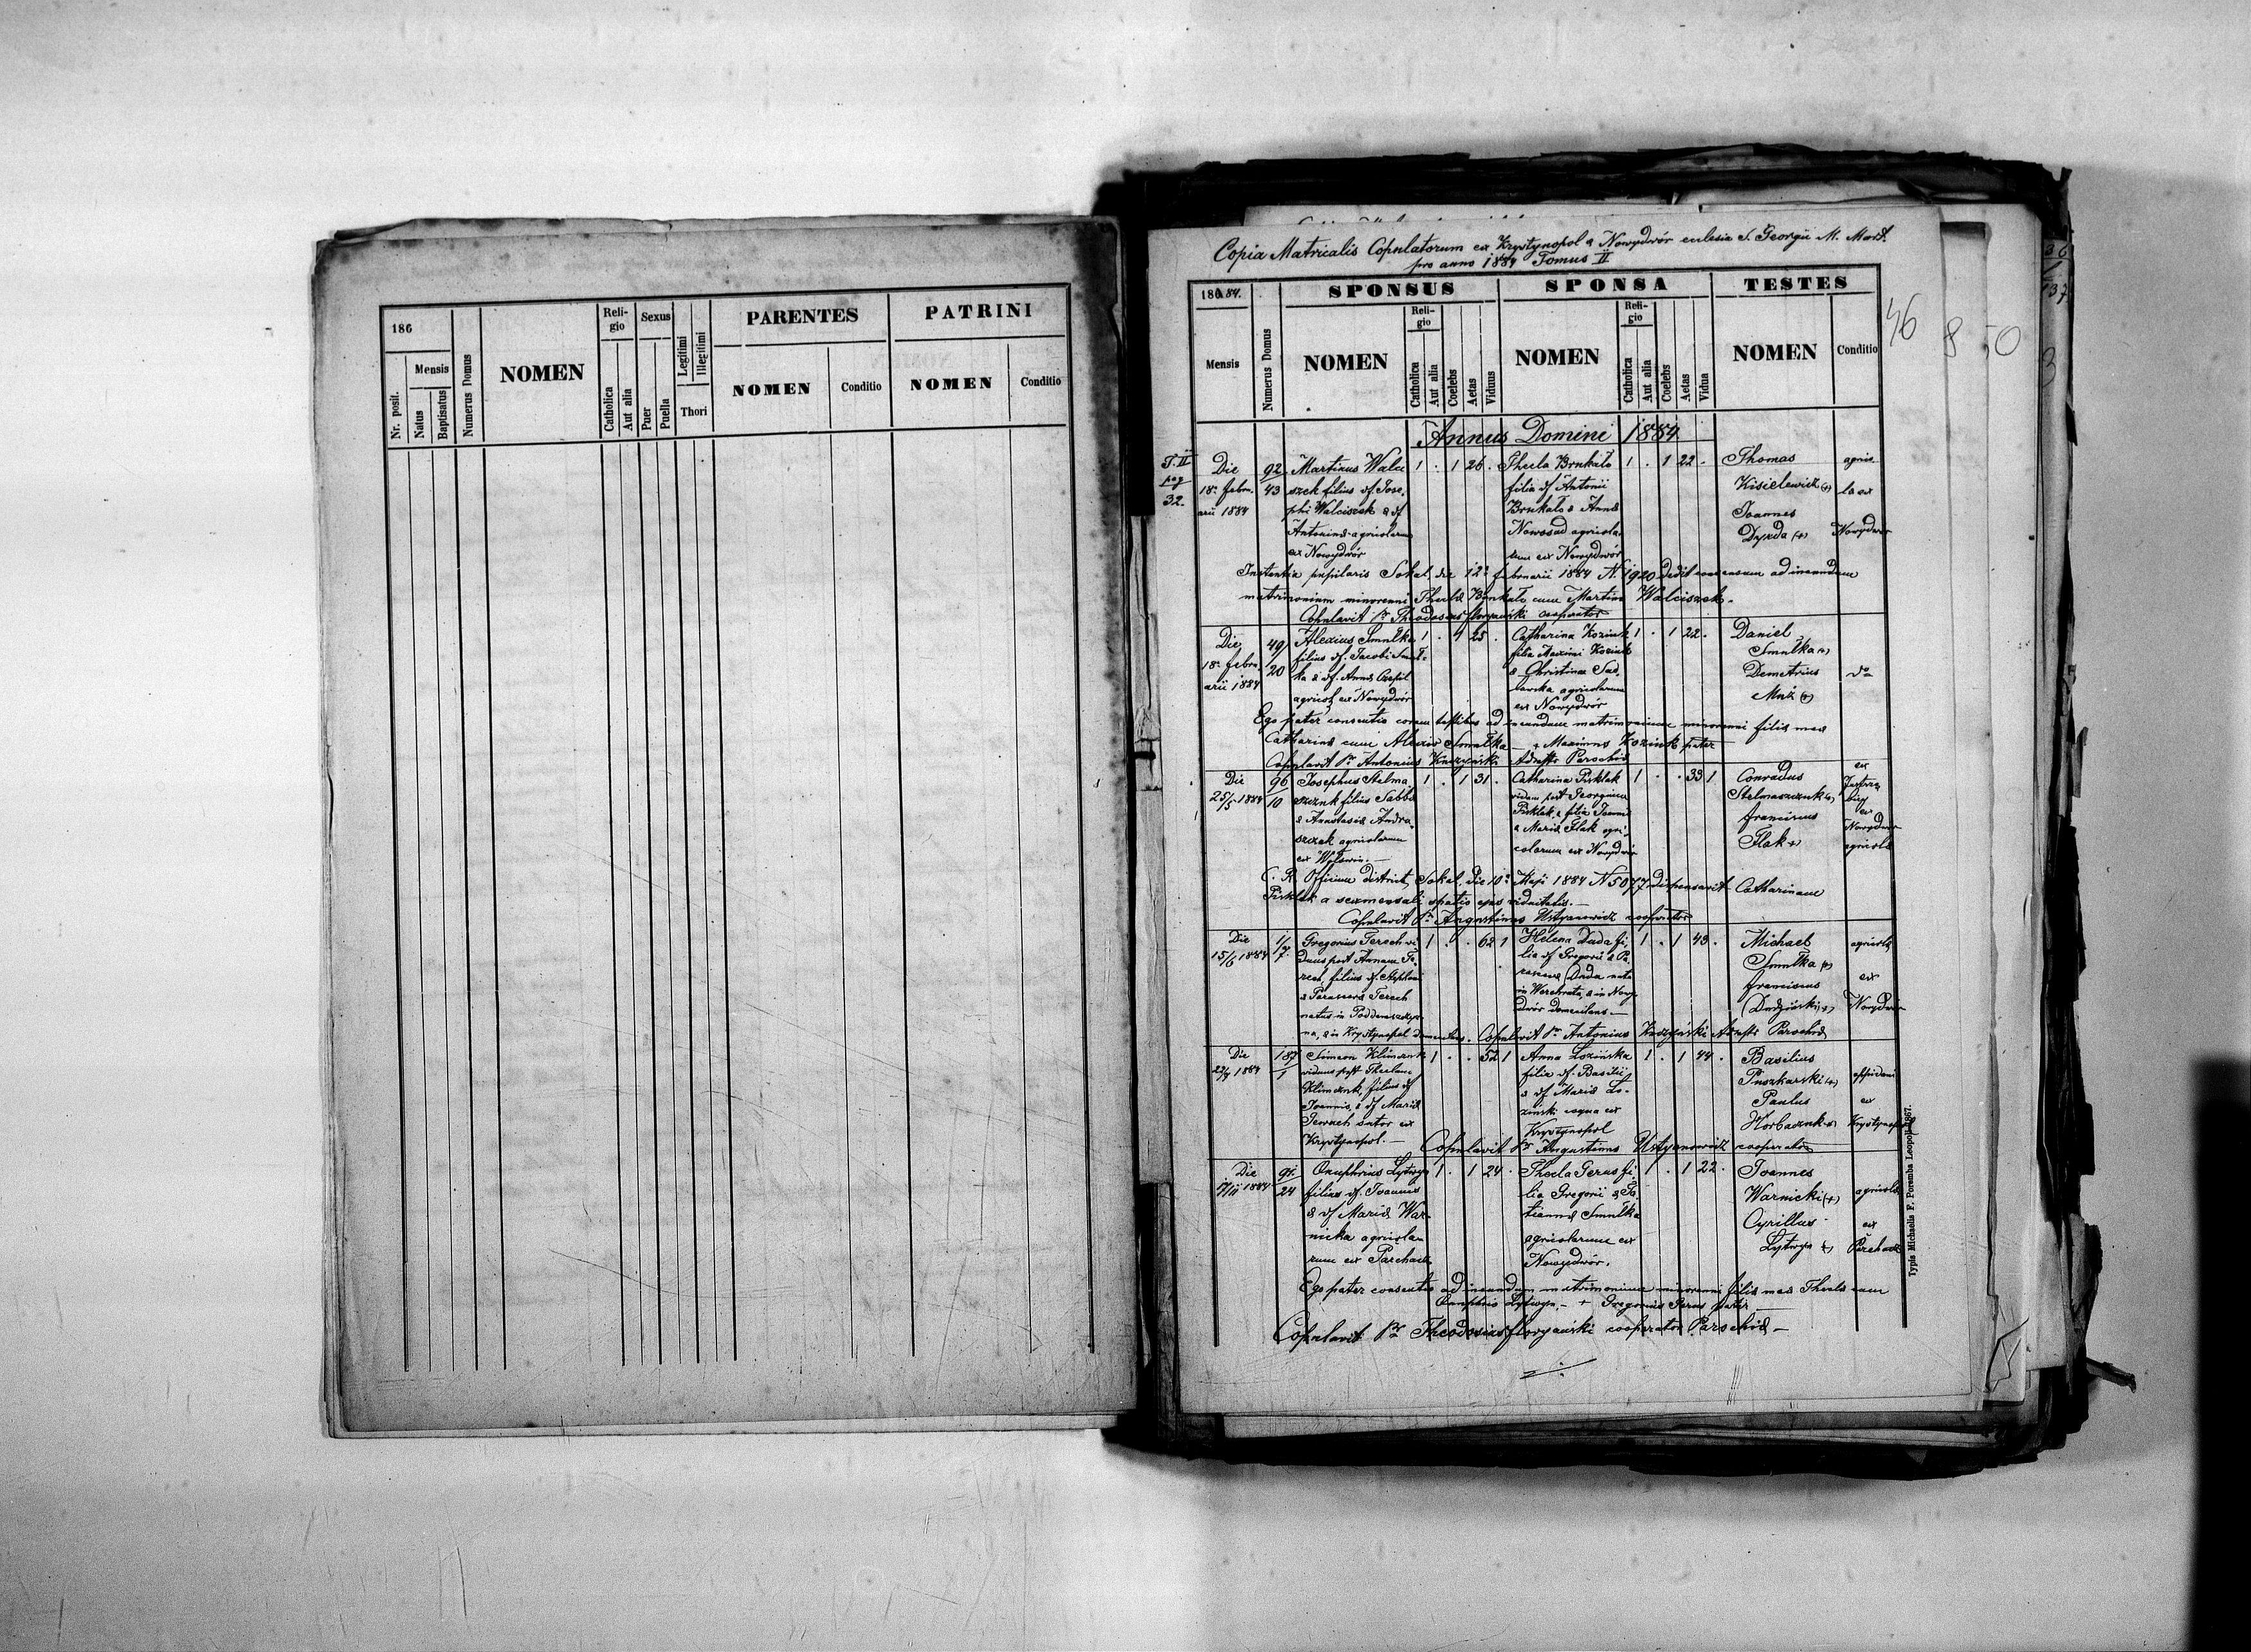 186
Nr. posit.
Mensis
Natus
Baptisatus
Numerus Domus
NOMEN
Reli-
gio
Catholica
Aut alia
Sexus
Puer
Puella
Legitimi
Illegitimi
Thori
PARENTES
NOMEN
Conditio
PATRINI
NOMEN
Conditio
Copia Matricalis Copulatorum ex Krystynopol & Nowydwór eclesia S. Georgii M. Mart.
pro anno 1884 Tomus II
1884.
Mensis
Numerus Domus
SPONSUS
NOMEN
Reli-
gio
Catholica
Aut alia
Coelebs
Aetas
Viduus
SPONSA
NOMEN
Reli-
gio
Catholica
Aut alia
Coelebs
Aetas
Vidua
TESTES
NOMEN
Conditio
46
8
50
Annus Domini 1884
T. II
pag
32.
Die
18a febru-
arii 1884
92
43
Martinus Walci
szek filius df. Jose,
phi Walciszek & df
Antonina agricolarum
ex Nowydwór
1 . 1 26 .
Thecla Brukało
filia df Antonii
Brukało & Anna
Nowosad agricola-
rum ex Nowydwór
1 . 1 22 .
Thomas
Kisielewicz (+)
Joannes
Dyzda (+)
agrico-
la ex
Nowydwór
Instantia pupilaris Sokal, die 12a februarii 1884 N. 1920 dedit consensum ad ineundum
matrimonium minorenni Thecla Brukało cum Martino Walciszek.
Copulavit Pr Theodosius floryański cooperator
Die
18a febru-
arii 1884
49
20
Alexius Smulka
filius df. Jacobi Smul-
ka & df. Anna
agricol. ex Nowydwór
1 . 1 25 .
Catharina Koziuk
filia Maximi Koziuk
& Christina Sad-
lowska agricolarum
ex Nowydwór
1 . 1 22 .
Daniel
Smulka (+)
Demetrius
Muż (+)
do
Ego pater consentio coram testibus ad ineundum matrimonium minorenni filia mea
Catharina cum Alexio Smulka — + Maximus Koziuk pater
Copulavit Pr Antonius Kuczyński Admstr Parochia
Die
25/5 1884
96
10
Josephus Stelma
szczuk filius Sabba
& Anastasia Andra-
szczak agricolarum
ex Wołswin. —
1 . 1 31 .
Catharina Pirklak
vidua post Georgium
Pirklak, & filia Joannis
& Maria Flak agri-
colarum ex Nowydwór
1 . . 33 1
Conradus
Stelmaszczuk (+)
franciscus
Flak (+)
ex
ex
Nowydwór
agricola
C. R. Officium district. Sokal, die 10a Maji 1884 N 5077 dispensavit Catharinam
Pirklak a sexmensali spatio ejus viduitatis. —
Copulavit Pr Augustinus Ustyanowicz cooperator
Die
15/6 1884
1/7
Gregorius Terech vi-
duus post Annam Te-
rech, filius df. Stephani
& Parasceva Terech
natus in
na, & in Krystynopol
1 . . 62 1
Helena Duda fi-
lia df Gregorii & Pa-
rasceva Duda nata
in Werchrata, & in Nowy-
dwór domicilians —
1 . 1 43 .
Michael
Smulka (+)
franciscus
Dudziński (+)
agricola
ex
Nowydwór
Copulavit Pr Antonius Kuczyński Admstr Parochia
Die
1884
187
1
Simeon Klimczuk
viduus post Theclam
Klimczuk, filius df
Joannis, & df Maria
sutor ex
Krystynopol. —
1 . . 52 1
Anna Łozińska
filia df. Basilii
& df Maria Ło-
zinski coqua ex
Krystynopol
1 . 1 44 .
Basilius
Puszkarski (+)
Paulus
Horbaczuk (+)
oppidani
ex
Krystynopol
Copulavit Pr Augustinus Ustyanowicz cooperator
Die
17/11 1884
91.
24
Onuphrius Lytwyn
filius df. Joannis
& df Maria War-
nicka agricola-
rum ex Parchacz.
1 . 1 24 .
Thecla Gerus fi-
lia Gregorii & Ta-
tianna Smulka
agricolarum ex
Nowydwór.
1 . 1 22 .
Joannes
Warnicki (+)
Cyrillus
Lytwyn (+)
agricola
ex
Parchacz
Ego pater consentio ad ineundum matrimonium minorenni filia mea Thecla cum
Onuphrio Lytwyn. — + Gregorius Gerus pater
Copulavit Pr Theodosius floryański cooperator Parochia —
Typis Michaelis F. Poremba Leopoli 1867.